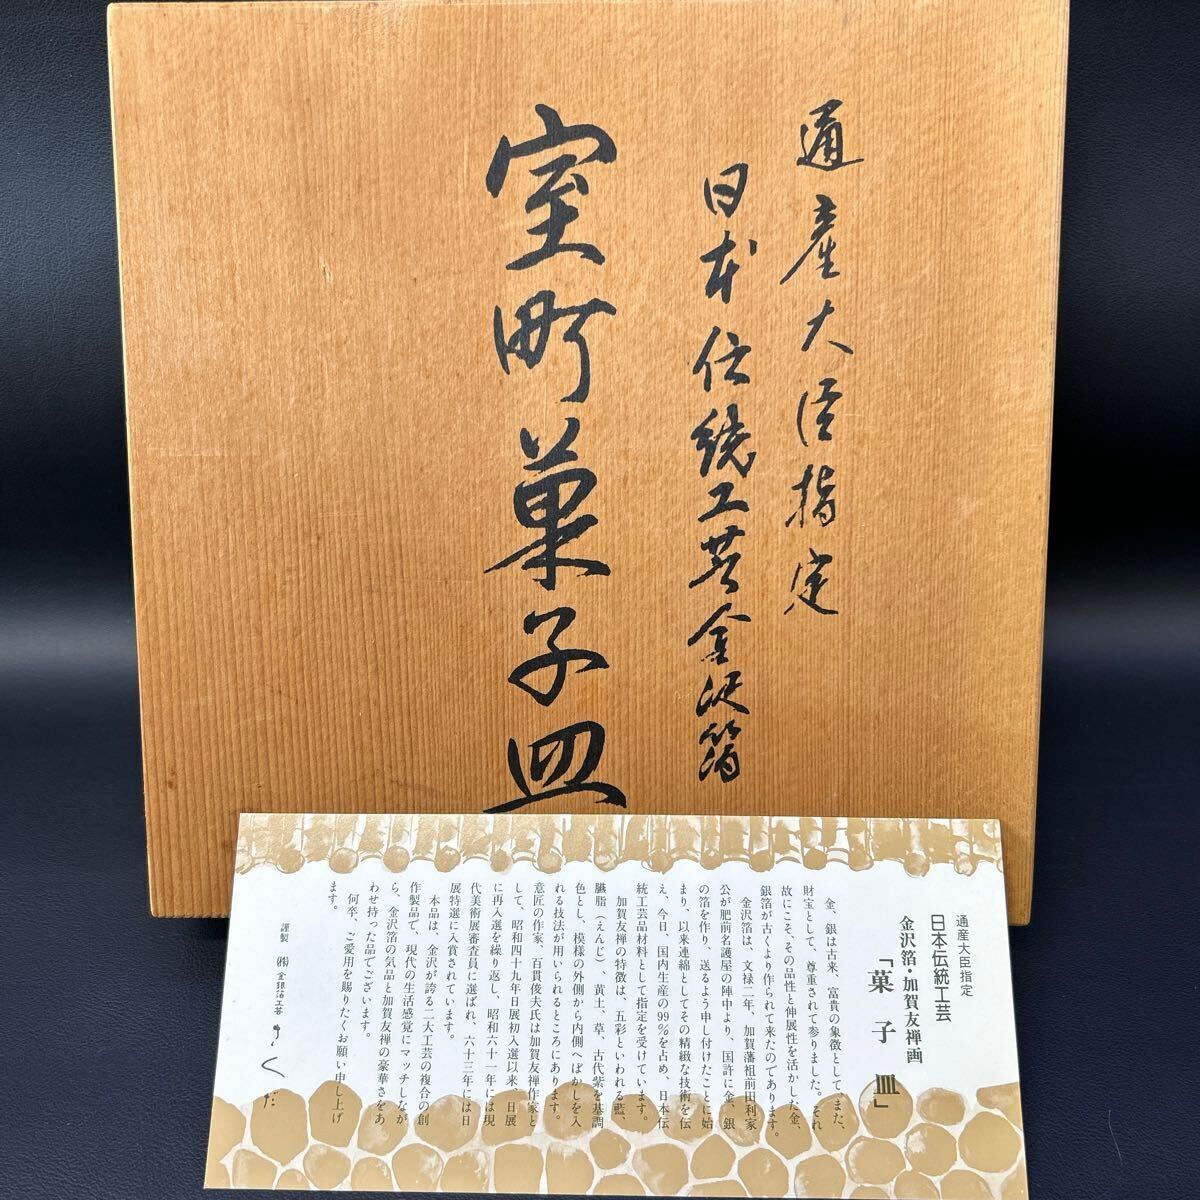 通産大臣指定
日本伝統工芸金沢箔
室町菓子皿
通産大臣指定
日本伝統工芸
金沢箔・加賀友禅画
「菓子皿」
金、銀は古来、富貴の象徴として、また、
財宝として、尊重されて参りました。それ
故にこそ、その品性と伸展性を活かした金、
銀箔が古くより作られて来たのであります。
金沢箔は、文禄二年、加賀藩祖前田利家
公が肥前名護屋の陣中より、国許に金、銀
の箔を作り、送るよう申し付けたことに始
まり、以来連綿としてその精緻な技術を伝
え、今日、国内生産の99%を占め、日本伝
統工芸品材料として指定を受けています。
加賀友禅の特徴は、五彩といわれる藍、
臙脂（えんじ）、黄土、草、古代紫を基調
色とし、模様の外側から内側へぼかしを入
れる技法が用いられるところにあります。
意匠の作家、百貫俊夫氏は加賀友禅作家と
して、昭和四十九年日展初入選以来、日展
に再入選を繰り返し、昭和六十一年には現
代美術展審査員に選ばれ、六十三年には日
展特選に入賞されています。
本品は、金沢が誇る二大工芸の複合の創
作製品で、現代の生活感覚にマッチしなが
ら、金沢箔の気品と加賀友禅の豪華さをあ
わせ持った品でございます。
何卒、ご愛用を賜りたくお願い申し上げ
ます。
謹製 ㈱金銀箔工芸 さくだ